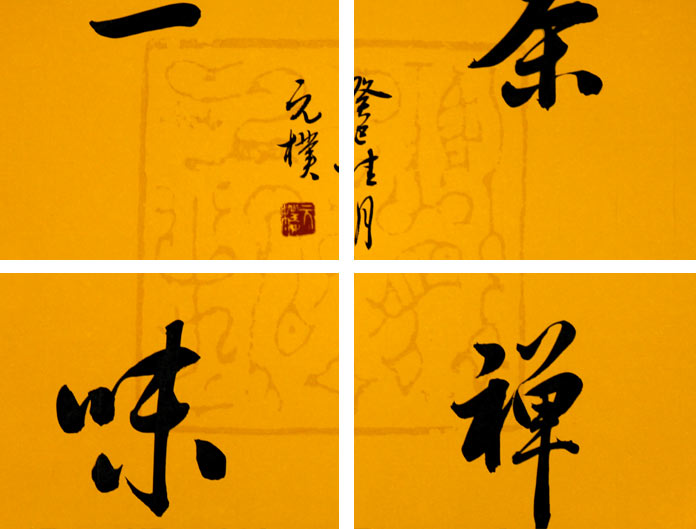 茶禅
一味
癸巳佳月
元樸